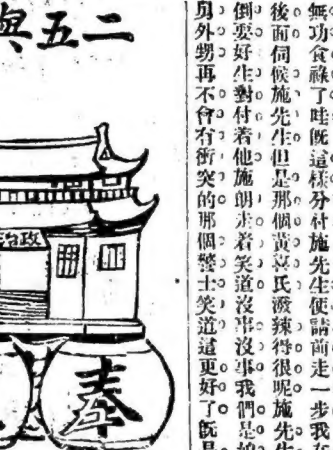 無功食祿了哇。既這樣分付。施先生便請前走一步。我在
後面伺候施先生。但是那個黃氏潑辣得很呢。施先生
倒要好生對付着他。施朗走着笑道。沒事沒事。我們是
舅外甥。再不會有衝突的。那個警士笑道。這更好了。既是
二五與
政治
奉